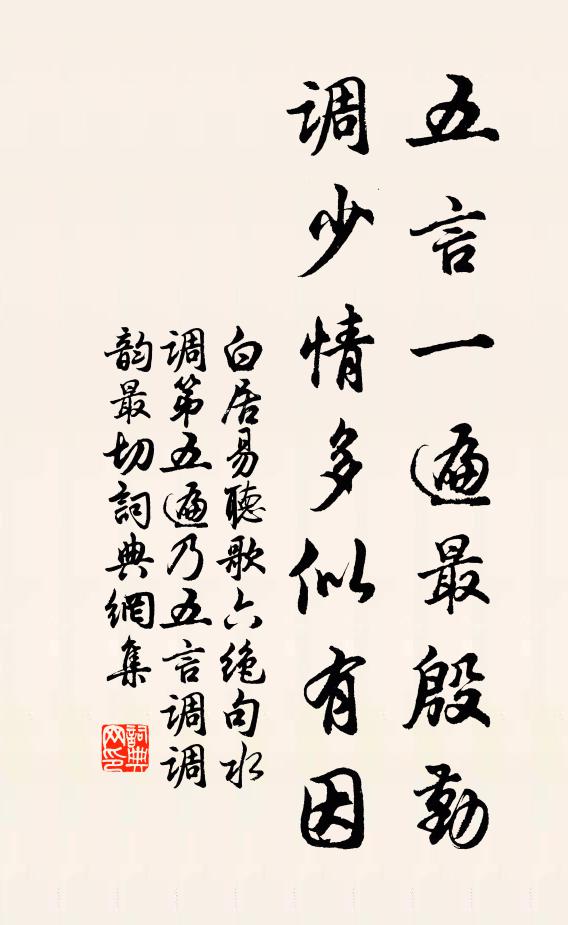 五言一遍最殷勤
调少情多似有因
白居易聽歌六绝句水
调第五遍乃五言调调
韵最切詞典網集
詞典网印